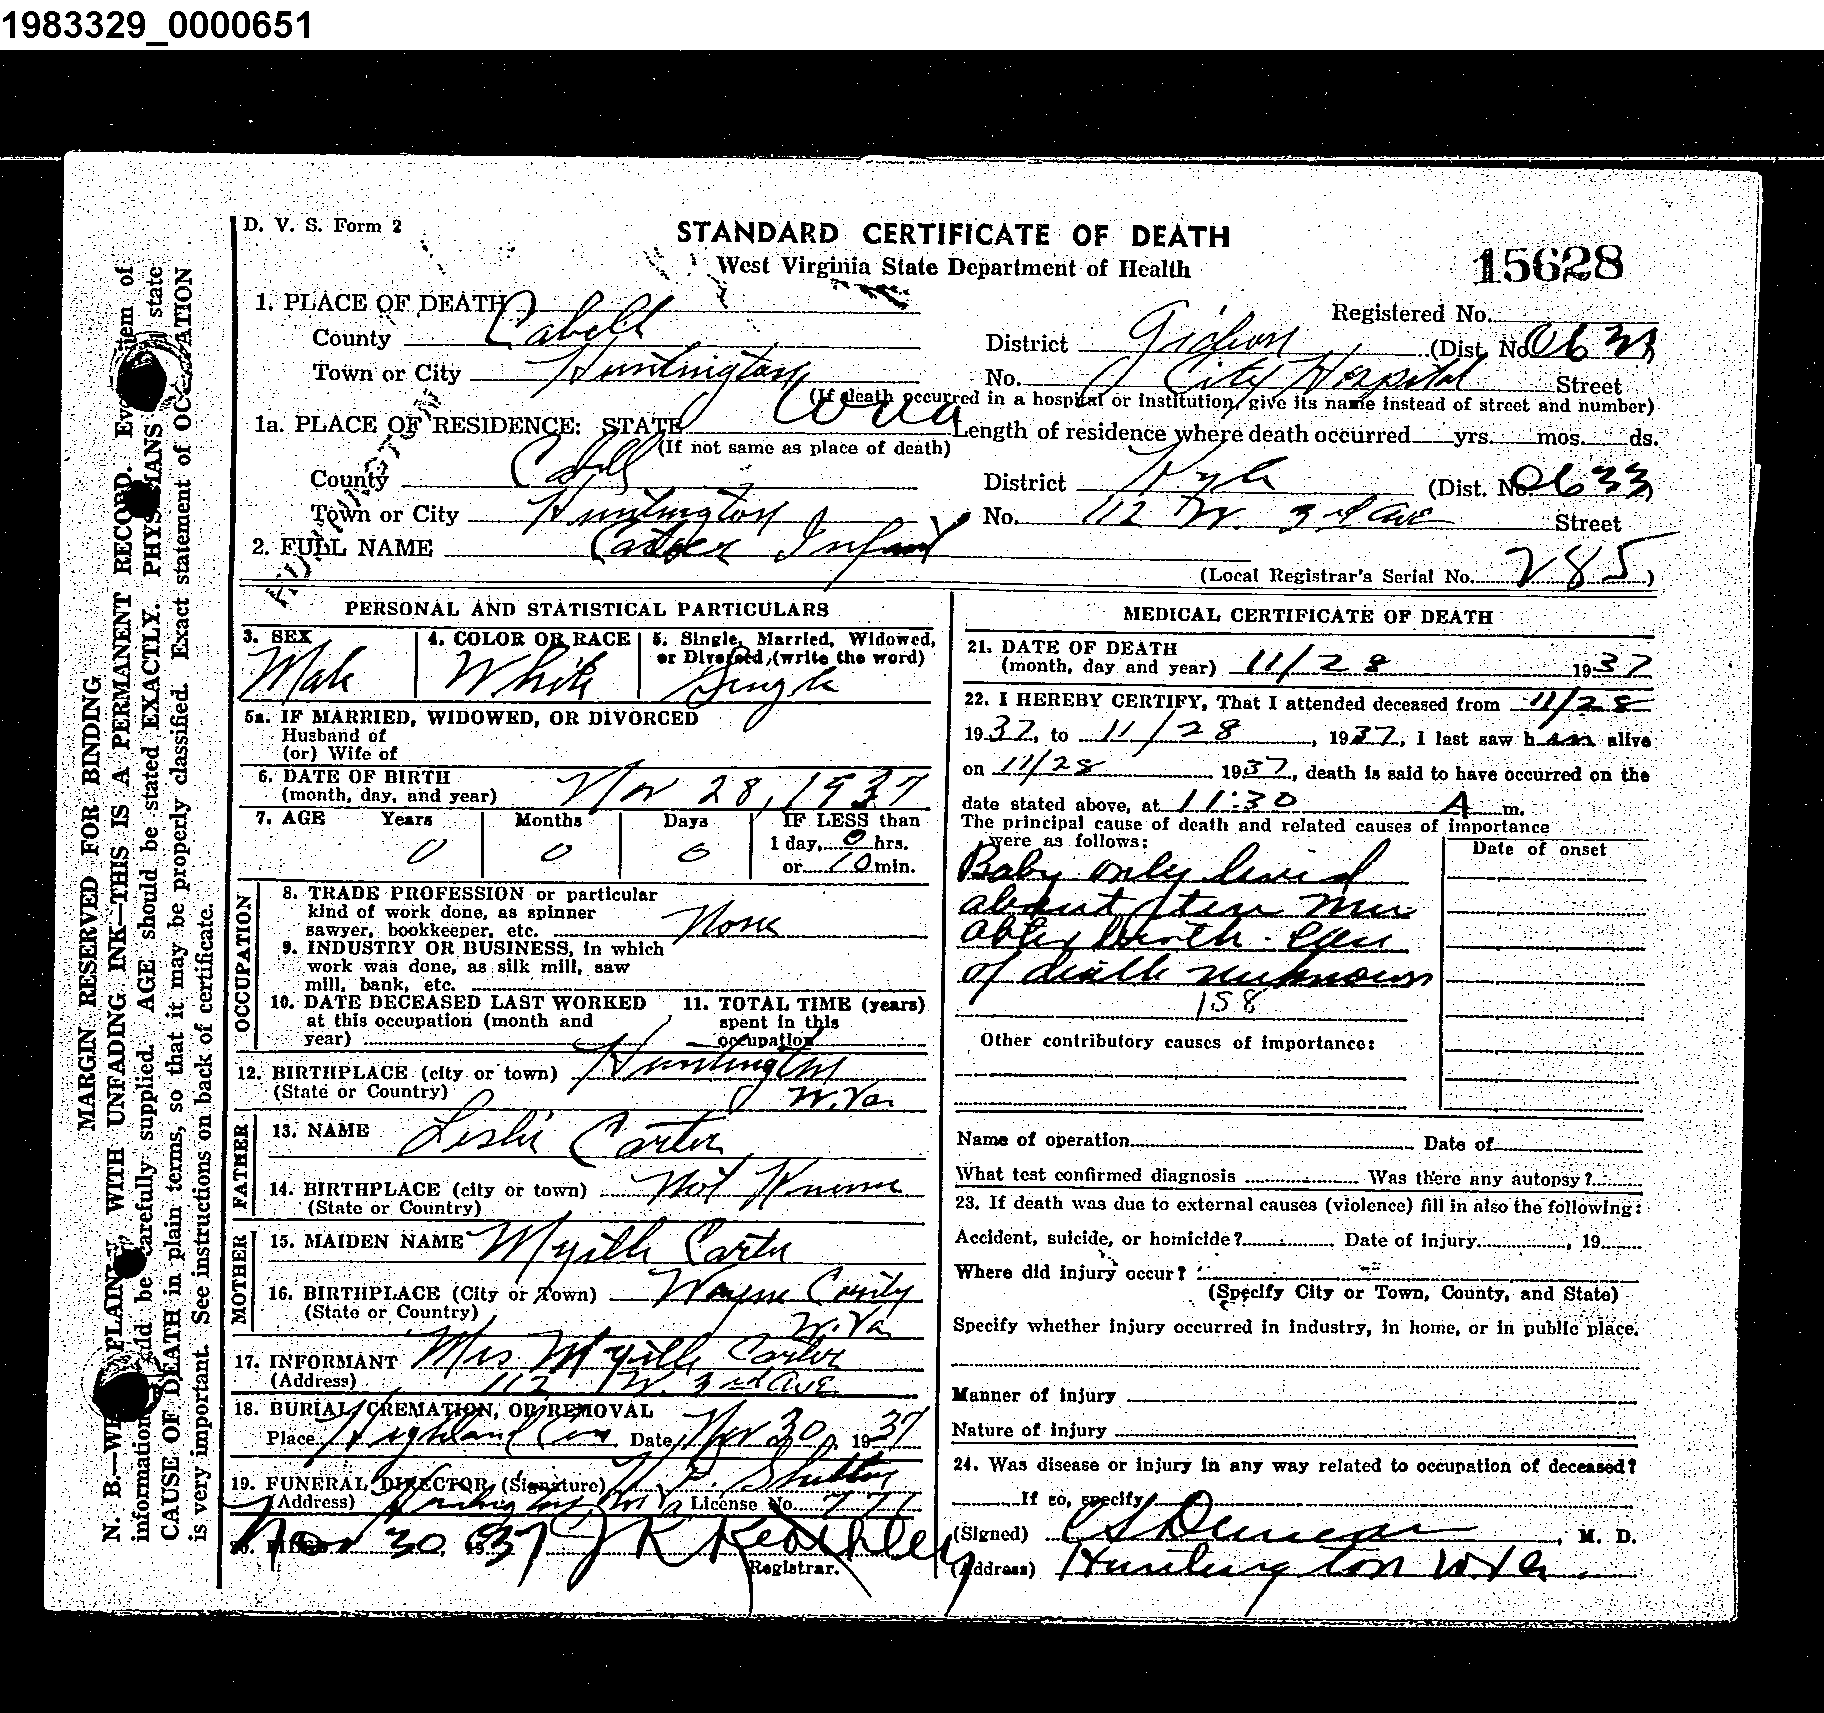 1983329_0000651
D. V. S. Form 2
STANDARD CERTIFICATE OF DEATH
West Virginia State Department of Health
15628
1. PLACE OF DEATH
Registered No.
County Cabell
District Gideon (Dist. No. 0633
Town or City Huntington
No. City Hospital Street
(If death occurred in a hospital or institution, give its name instead of street and number)
1a. PLACE OF RESIDENCE: STATE W Va
(If not same as place of death)
Length of residence where death occurred yrs. mos. ds.
County Cabell
District Kyle (Dist. No. 0633)
Town or City Huntington
No. 112 W. 3rd Ave Street
2. FULL NAME Carter Infant
(Local Registrar's Serial No. 285)
PERSONAL AND STATISTICAL PARTICULARS
3. SEX Male
4. COLOR OR RACE White
5. Single, Married, Widowed, or Divorced, (write the word) Single
5a. IF MARRIED, WIDOWED, OR DIVORCED
Husband of
(or) Wife of
6. DATE OF BIRTH
(month, day, and year) Nov 28, 1937
7. AGE Years Months Days IF LESS than
0 0 0 1 day, 0 hrs.
or 10 min.
OCCUPATION
8. TRADE PROFESSION or particular
kind of work done, as spinner
sawyer, bookkeeper, etc. None
9. INDUSTRY OR BUSINESS, in which
work was done, as silk mill, saw
mill, bank, etc.
10. DATE DECEASED LAST WORKED
at this occupation (month and
year)
11. TOTAL TIME (years)
spent in this
occupation
12. BIRTHPLACE (city or town) Huntington
(State or Country) W. Va.
FATHER
13. NAME Leslie Carter
14. BIRTHPLACE (city or town) Not Known
(State or Country)
MOTHER
15. MAIDEN NAME Myrtle Carter
16. BIRTHPLACE (City or Town) Wayne County
(State or Country) W. Va
17. INFORMANT Mrs Myrtle Carter
(Address) 112 W. 3rd Ave.
18. BURIAL, CREMATION, OR REMOVAL
Place Highland Cem Date Nov 30, 1937
19. FUNERAL DIRECTOR (Signature)
(Address) Huntington W Va License No. 777
20. FILED Nov 30, 1937 J K Keathley
Registrar.
MEDICAL CERTIFICATE OF DEATH
21. DATE OF DEATH
(month, day and year) 11/28 1937
22. I HEREBY CERTIFY, That I attended deceased from 11/28
1937, to 11/28, 1937, I last saw him alive
on 11/28 1937, death is said to have occurred on the
date stated above, at 11:30 A m.
The principal cause of death and related causes of importance
were as follows:
Date of onset
Baby only lived
about ten min
after birth. Cause
of death unknown
158
Other contributory causes of importance:
Name of operation Date of
What test confirmed diagnosis Was there any autopsy?
23. If death was due to external causes (violence) fill in also the following:
Accident, suicide, or homicide? Date of injury , 19
Where did injury occur?
(Specify City or Town, County, and State)
Specify whether injury occurred in industry, in home, or in public place.
Manner of injury
Nature of injury
24. Was disease or injury in any way related to occupation of deceased?
If so, specify
(Signed) C S Duncan, M. D.
(Address) Huntington W. Va.
MARGIN RESERVED FOR BINDING
N. B.—WRITE PLAINLY WITH UNFADING INK—THIS IS A PERMANENT RECORD. Every item of
information should be carefully supplied. AGE should be stated EXACTLY. PHYSICIANS should state
CAUSE OF DEATH in plain terms, so that it may be properly classified. Exact statement of OCCUPATION
is very important. See instructions on back of certificate.